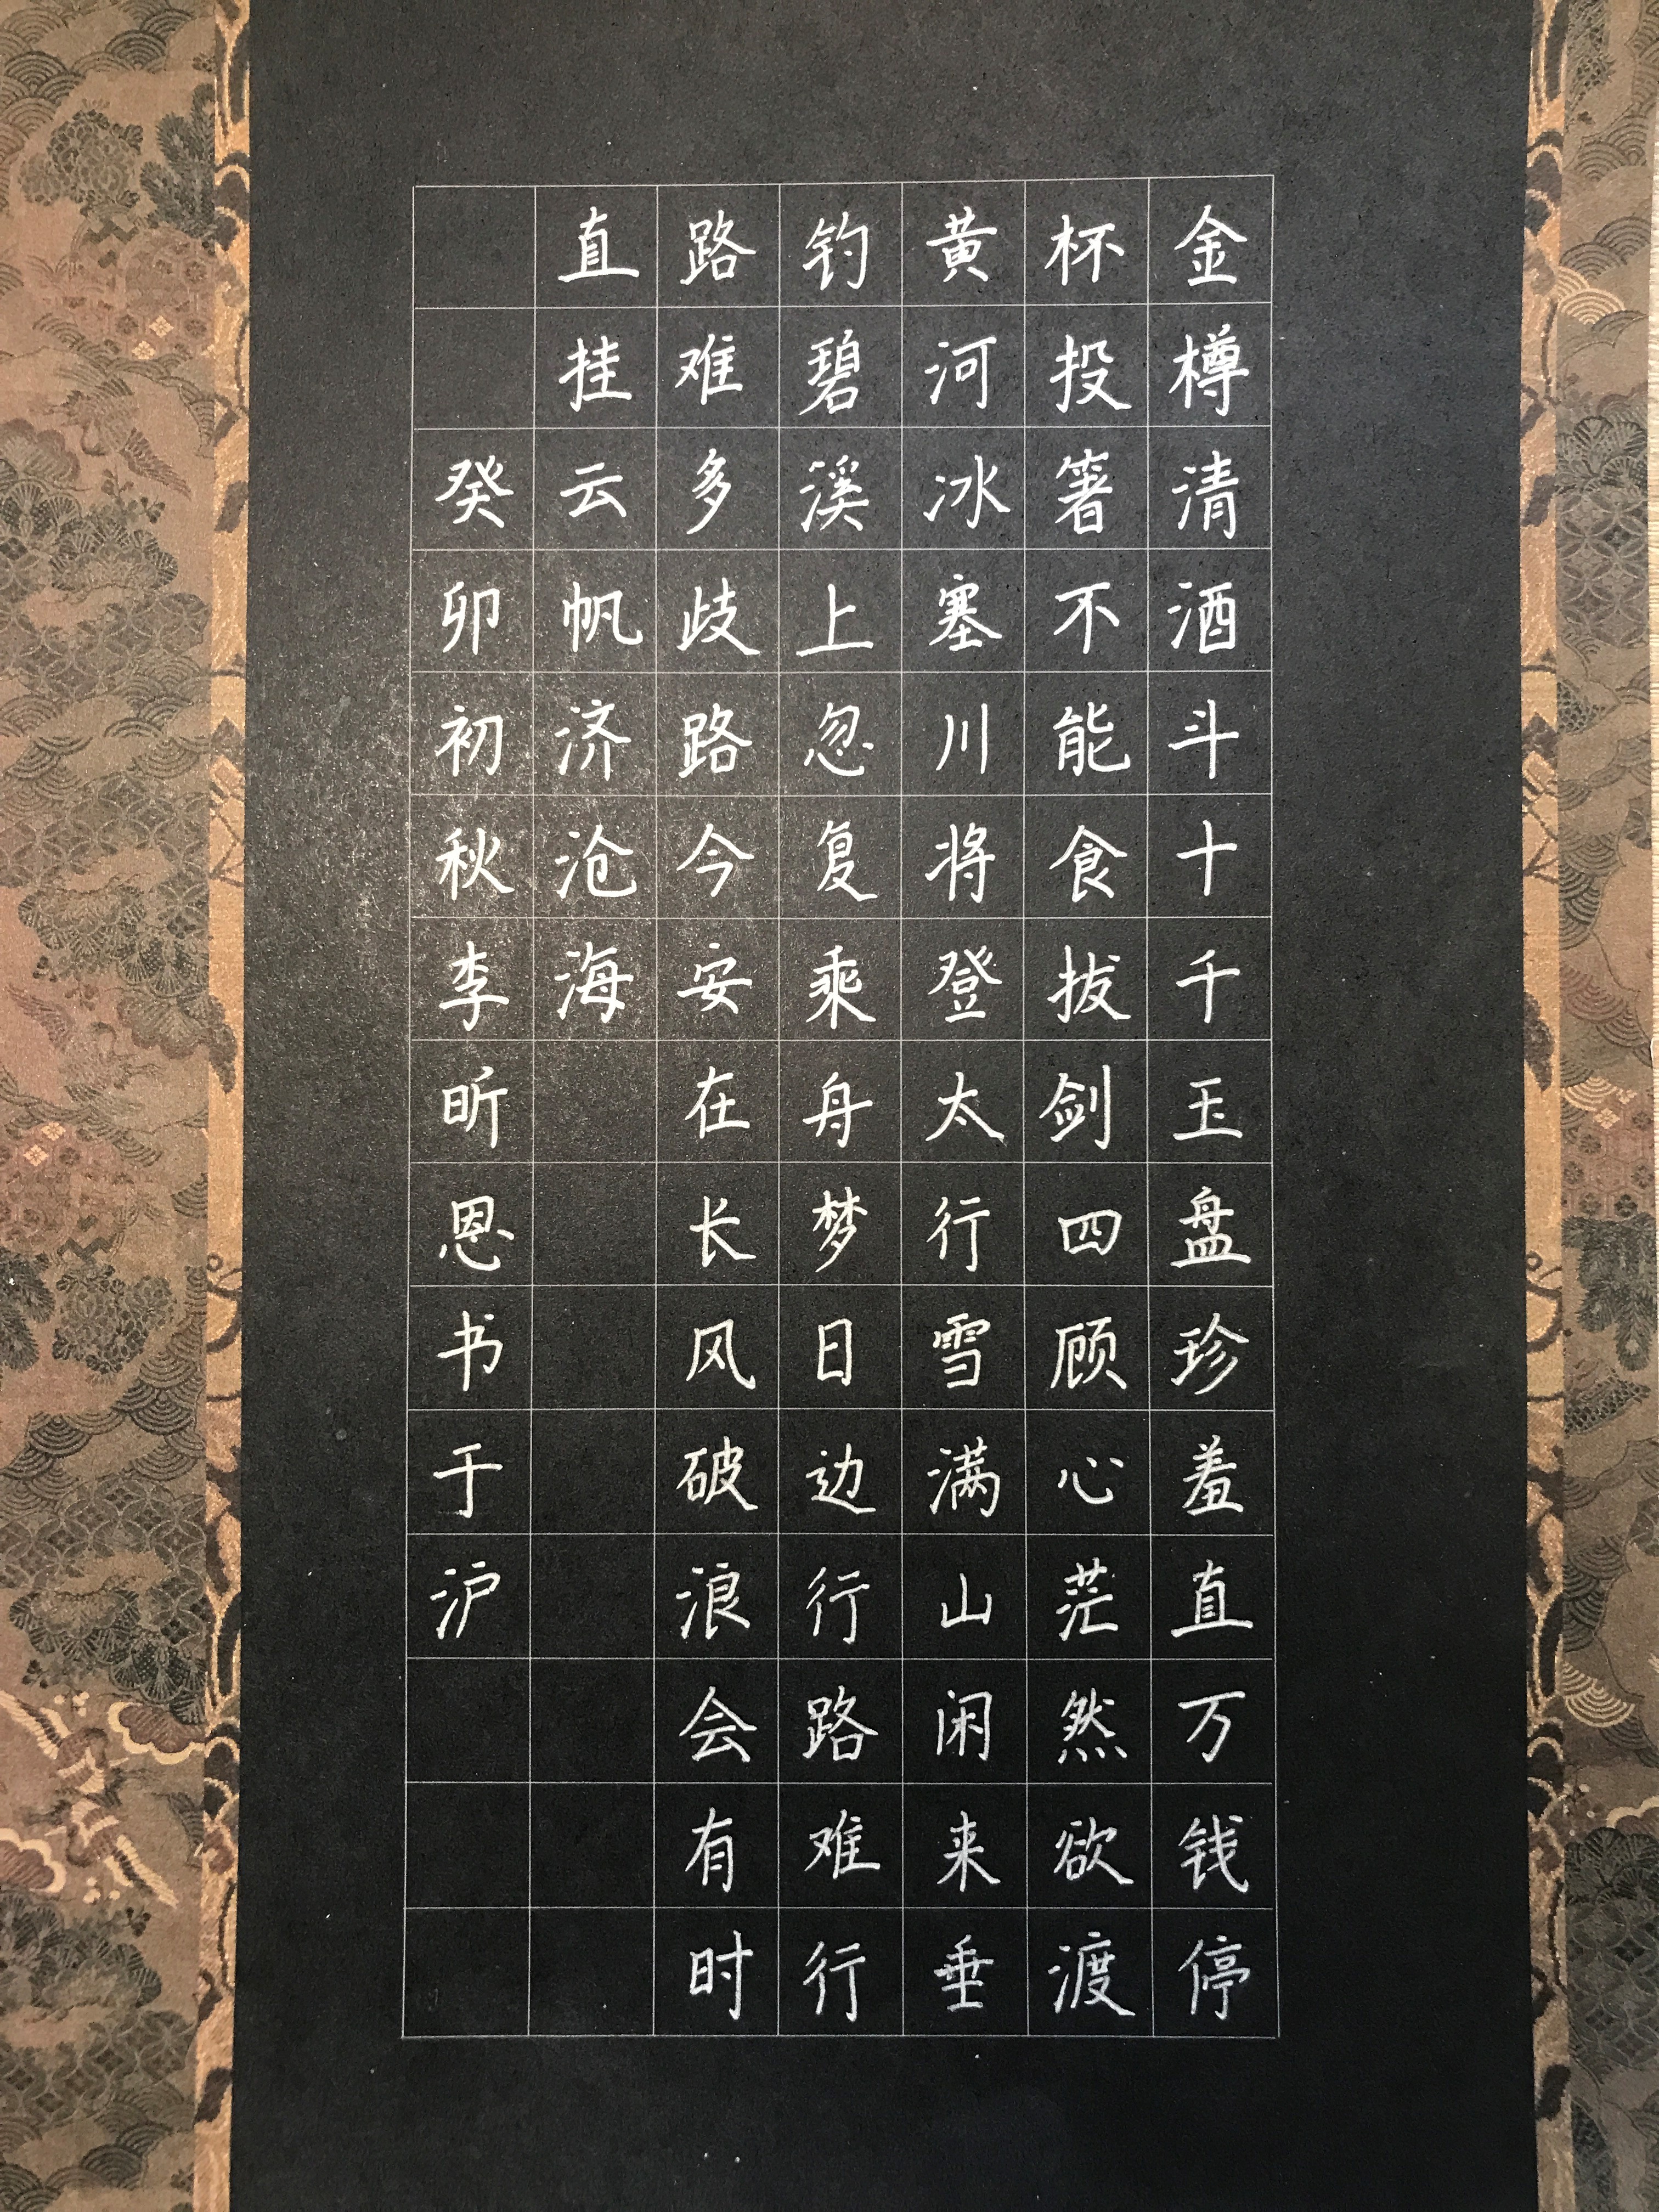 金樽清酒斗十千玉盘珍羞直万钱停
杯投箸不能食拔剑四顾心茫然欲渡
黄河冰塞川将登太行雪满山闲来垂
钓碧溪上忽复乘舟梦日边行路难行
路难多歧路今安在长风破浪会有时
直挂云帆济沧海
癸卯初秋李昕恩书于沪